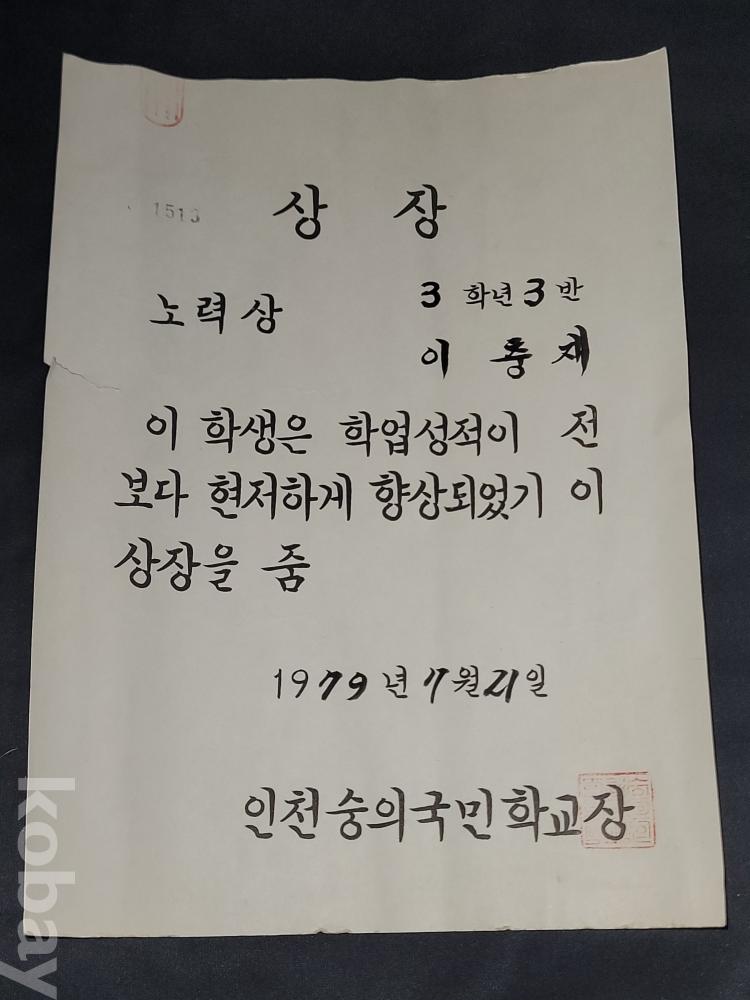 상 장
노력상
3 학년 3 반
이 학생은 학업성적이 전
보다 현저하게 향상되었기 이
상장을 줌
1979년 7월 21일
인천숭의국민학교장
kobay